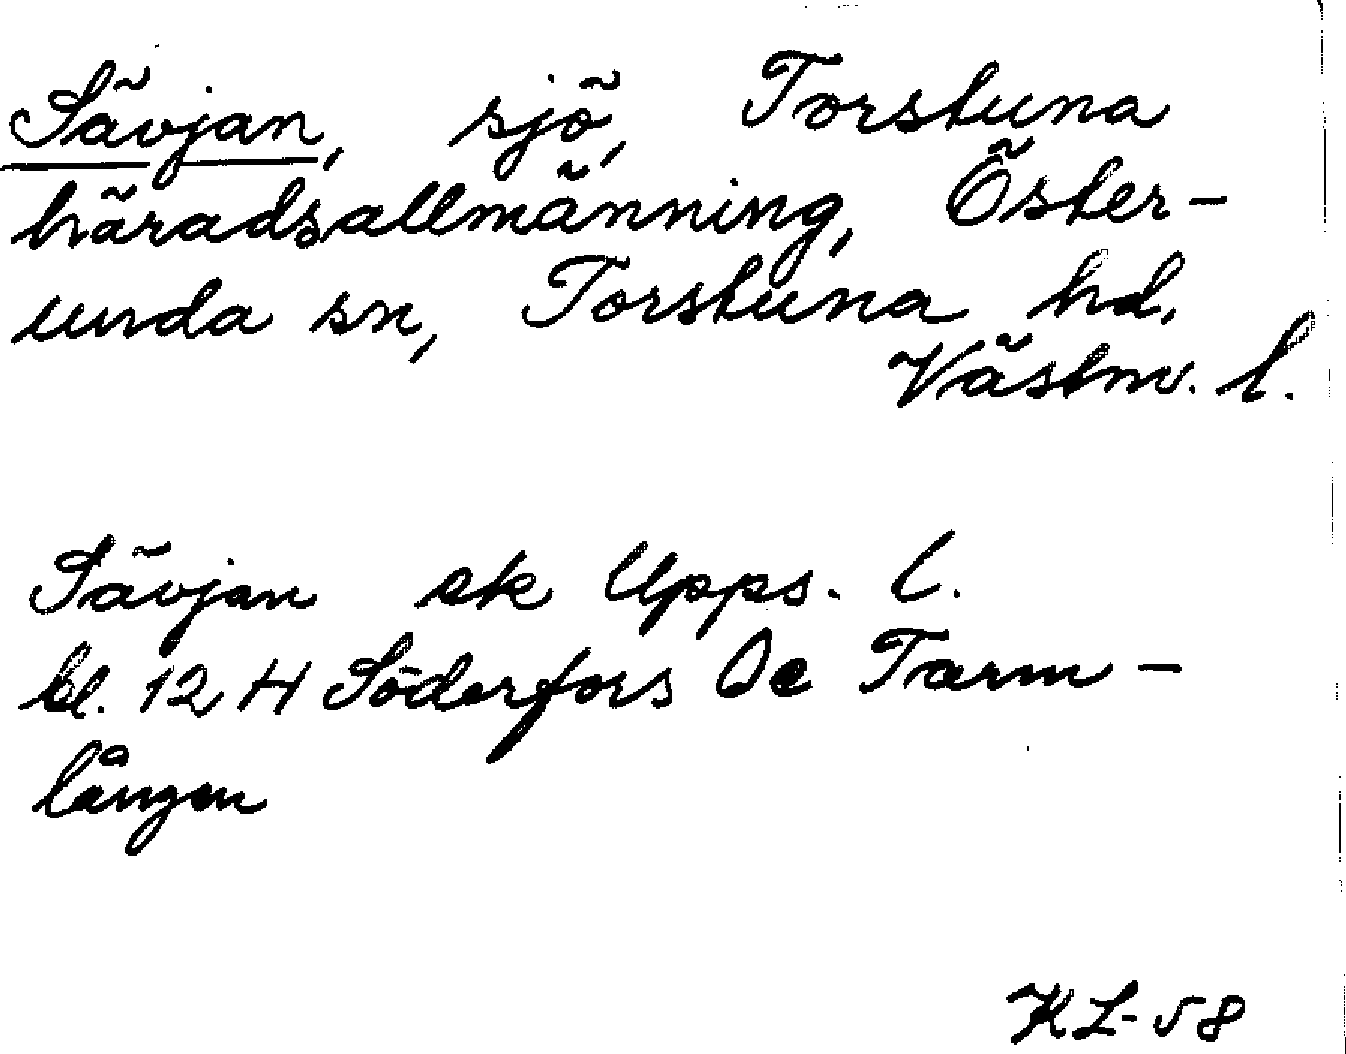 Sävjan, sjö, Torstuna
häradsallmänning, Öster-
unda sn, Torstuna hd.
Västm. l.
Sävjan ek Upps. l.
bl. 12 H Söderfors Tarm-
lången
KL-58